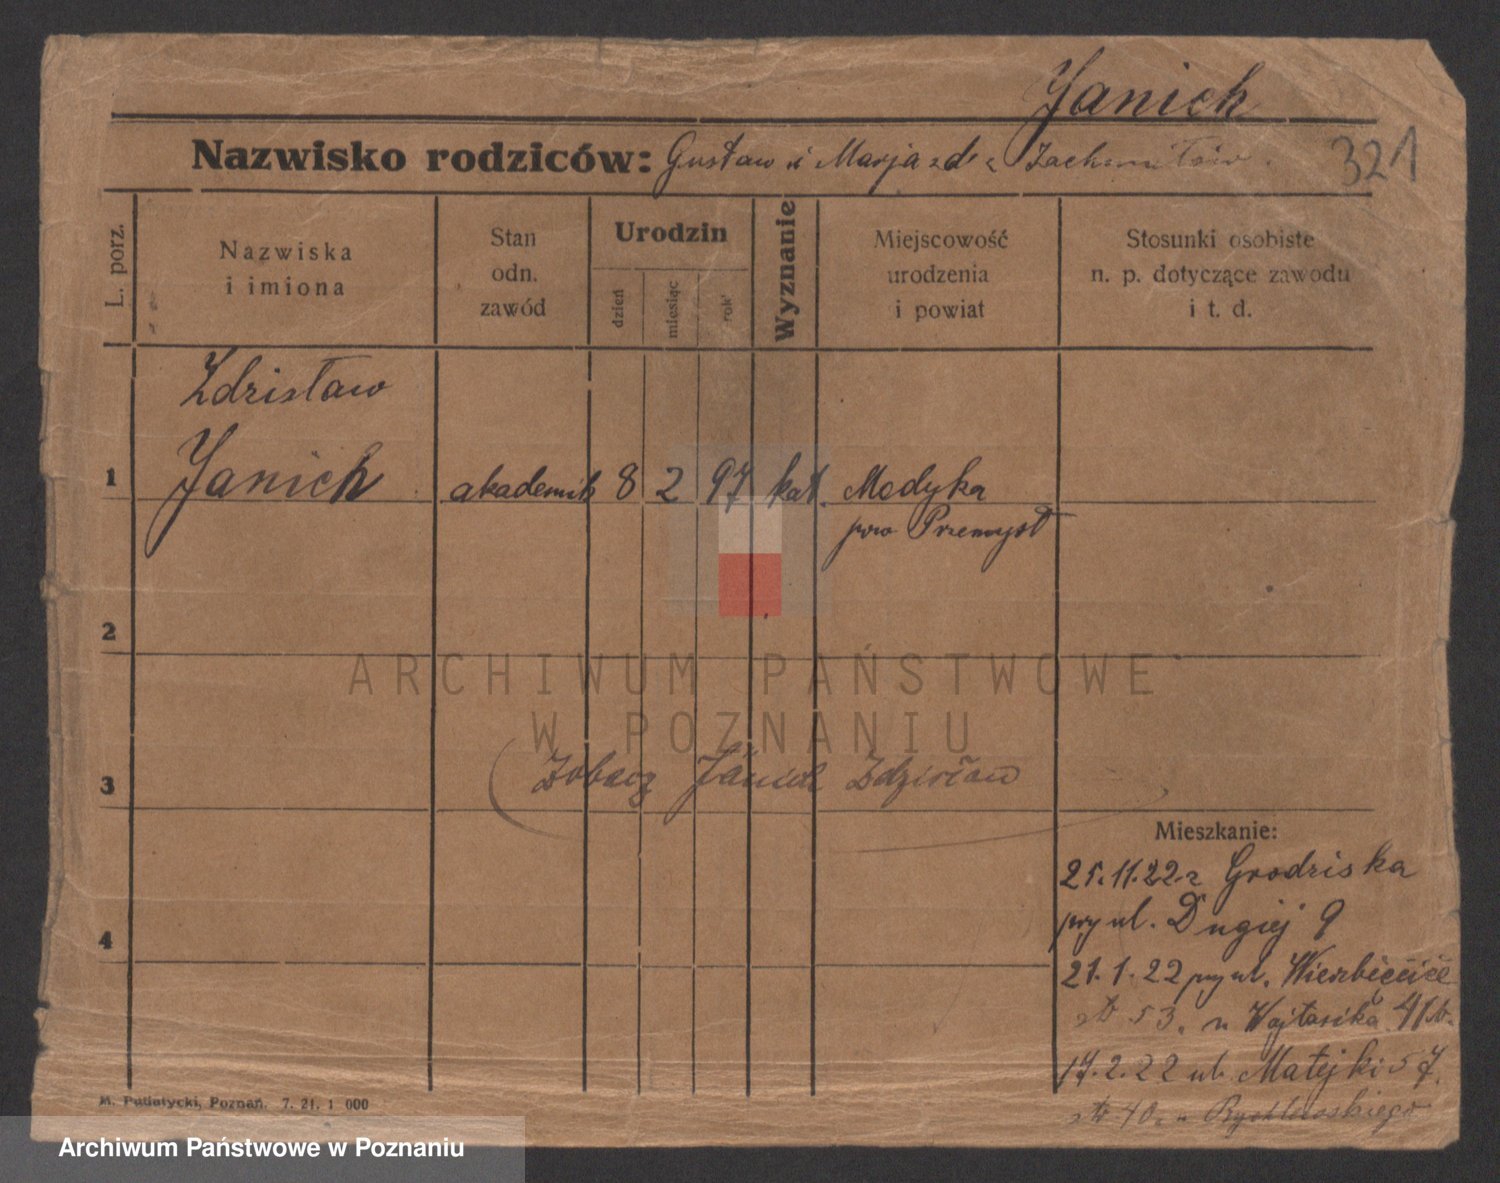 Janich
Nazwisko rodziców: Gustaw i Marja z d.
321
L. porz.
Nazwiska
i imiona
Stan
odn.
zawód
Urodzin
dzień
miesiąc
rok
Wyznanie
Miejscowość
urodzenia
i powiat
Stosunki osobiste
n. p. dotyczące zawodu
i t. d.
Zdzisław
1 Janich akademik 8 2 97 kat. Medyka
pow Przemysł
2
ARCHIWUM PAŃSTWOWE
W POZNANIU
Zobacz Janich Zdzisław
3
Mieszkanie:
25.11.22 z Grodziska
przy ul. Długiej 9
4
21.1.22 przy ul. Wierzbięcice
53. u Wojtasika
17.2.22 ul. Matejki 57.
40. u
M. Putiatycki, Poznań. 7. 21. 1 000
Archiwum Państwowe w Poznaniu